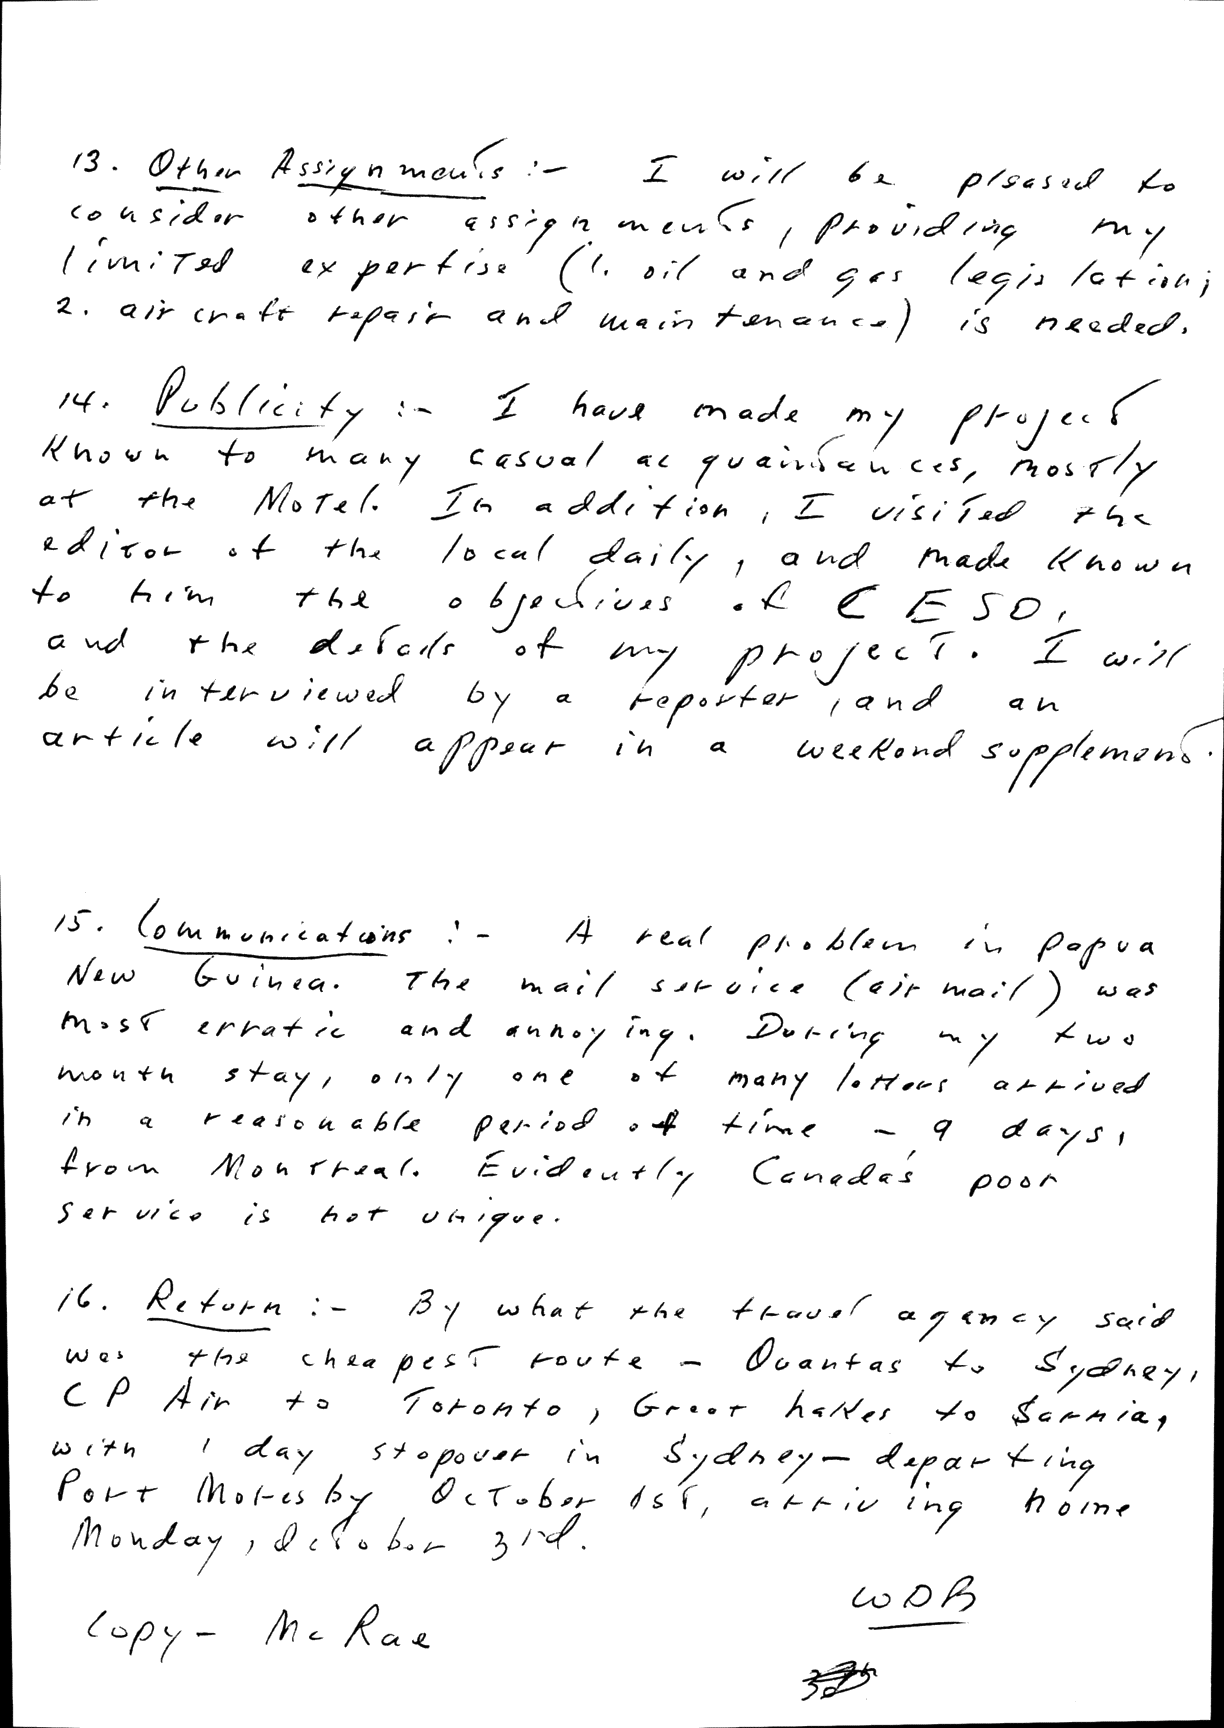 13. Other Assignments :- I will be pleased to
consider other assignments, providing my
limited expertise (1. oil and gas legislation;
2. aircraft repair and maintenance) is needed.
14. Publicity :- I have made my project
known to many casual acquaintances, mostly
at the Motel. In addition, I visited the
editor of the local daily, and made known
to him the objectives of CESO,
and the details of my project. I will
be interviewed by a reporter, and an
article will appear in a weekend supplement.
15. Communications :- A real problem in Papua
New Guinea. The mail service (air mail) was
most erratic and annoying. During my two
month stay, only one of many letters arrived
in a reasonable period of time - 9 days,
from Montreal. Evidently Canada's poor
service is not unique.
16. Return :- By what the travel agency said
was the cheapest route - Quantas to Sydney,
CP Air to Toronto, Great Lakes to Sarnia,
with 1 day stopover in Sydney - departing
Port Moresby October 1st, arriving home
Monday, October 3rd.
WDB
Copy - McRae